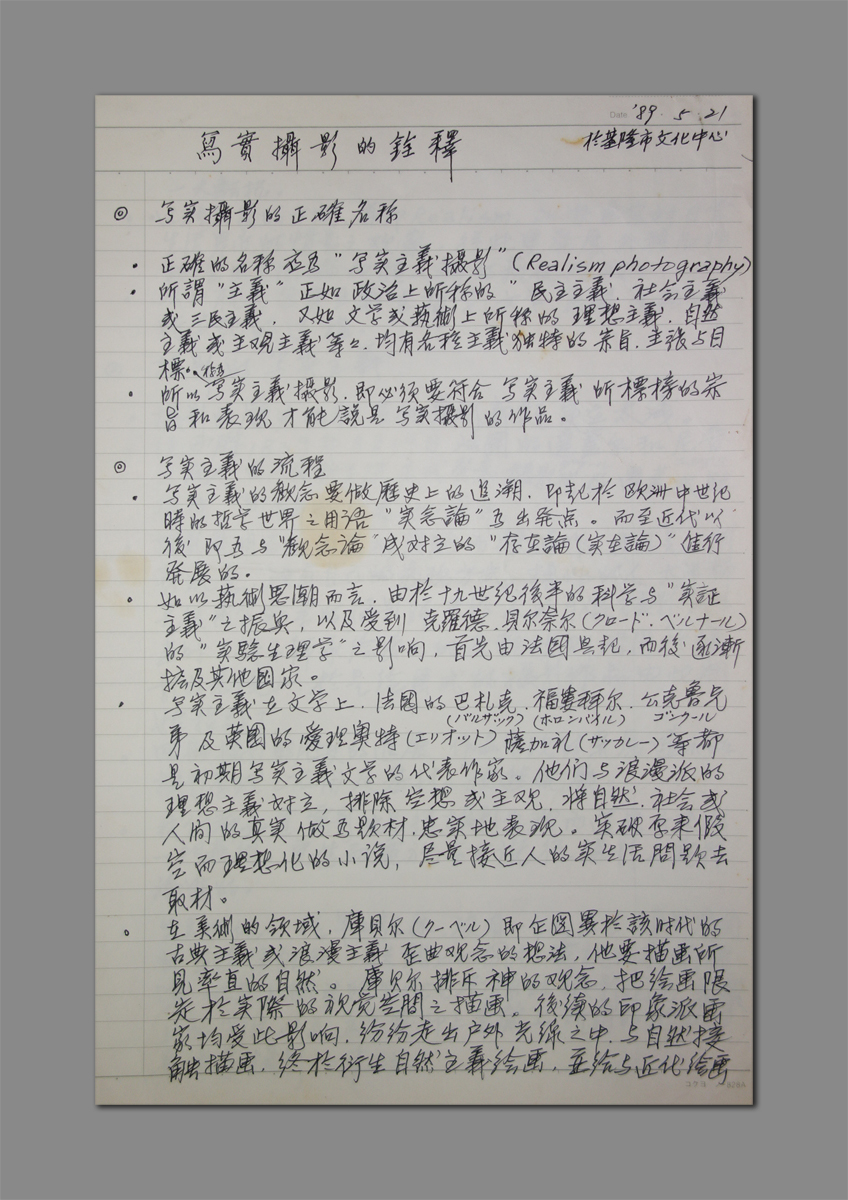 Date '89 . 5 . 21
寫實攝影的銓釋
於基隆市文化中心
◎ 写实攝影的正確名称
・ 正確的名称應為"写实主義攝影"(Realism photography)
・ 所謂"主義"正如政治上所称的"民主主義、社会主義
或三民主義,又如文学或藝術上所称的理想主義、自然
主義或主观主義等々,均有各種主義独特的宗旨、主張与目
標。
・ 所以称為写实主義攝影,即必須要符合写实主義所標榜的宗
旨和表现才能説是写实攝影的作品。
◎ 写实主義的流程
・ 写实主義的概念要做歷史上的追溯,即起於欧洲中世紀
時的哲学世界之用语"实念論"為出発点。而至近代以
後即為与"観念論"成对立的"存在論(实在論)"進行
発展的。
・ 如以藝術思潮而言,由於十九世紀後半的科学与"実証
主義"之振兴,以及受到克羅德.貝尔奈尔(クロード.ベルナール)
的"实驗生理学"之影响,首先由法國兴起,而後逐漸
擴及其他國家。
・ 写实主義在文学上,法國的巴札克、福婁拜尔、公克魯兄
(バルザック)(ホロンバオル) ゴンクール
弟及英國的愛理奧特(エリオット)薩加礼(サッカレー)等都
是初期写实主義文学的代表作家。他们与浪漫派的
理想主義对立,排除空想或主观,将自然、社会或
人间的真实做為题材,忠実地表现。突破原来假
空而理想化的小说,尽量接近人的实生活問题去
取材。
・ 在美術的领域,庫貝尔(クーベル)即企図異於該时代的
古典主義或浪漫主義歪曲观念的想法,他要描画所
見率直的自然。庫貝尔排斥神的观念,把绘画限
定於实際的視覚空間之描画。後續的印象派画
家均受此影响,纷纷走出户外光線之中,与自然接
触描画,终於衍生自然主義绘画,並给与近代绘画